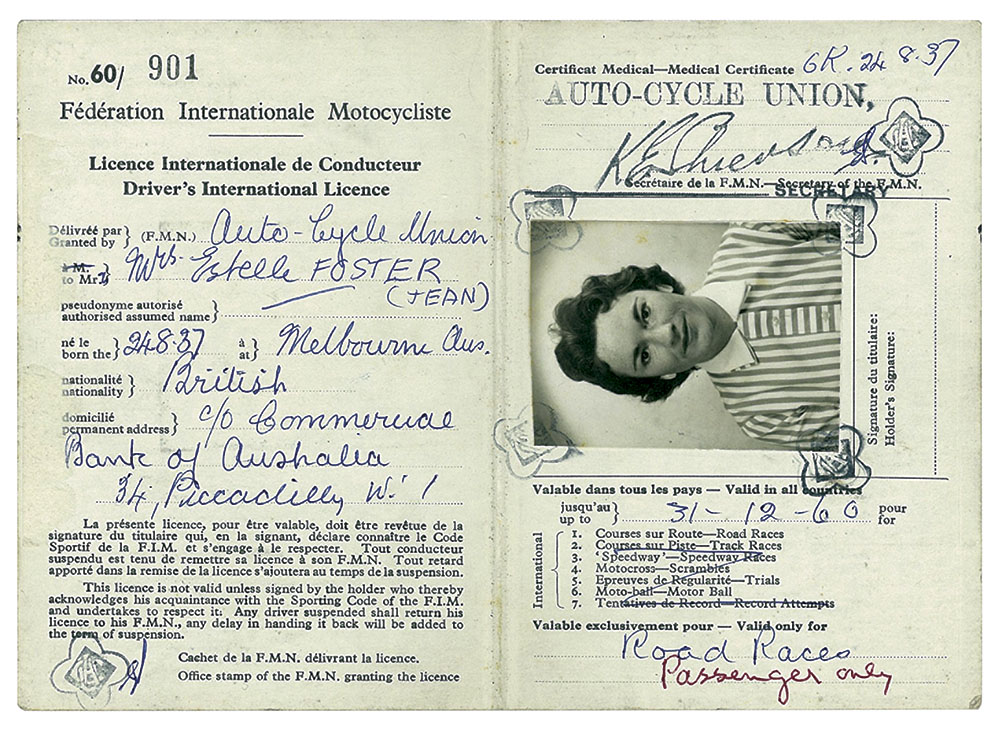 No. 60/ 901
Fédération Internationale Motocycliste
Licence Internationale de Conducteur
Driver's International Licence
Délivrée par
Granted by } (F.M.N.) Auto-Cycle Union
à M.
to Mr. } Mrs. Estelle FOSTER
(JEAN)
pseudonyme autorisé
authorised assumed name }
né le
born the } 24.8.37 à
at } Melbourne Aus.
nationalité
nationality } British
domicilié
permanent address } c/o Commercial
Bank of Australia
34, Piccadilly W.1
La présente licence, pour être valable, doit être revêtue de la
signature du titulaire qui, en la signant, déclare connaître le Code
Sportif de la F.I.M. et s'engage à le respecter. Tout conducteur
suspendu est tenu de remettre sa licence à son F.M.N. Tout retard
apporté dans la remise de la licence s'ajoutera au temps de la suspension.
This licence is not valid unless signed by the holder who thereby
acknowledges his acquaintance with the Sporting Code of the F.I.M.
and undertakes to respect it: Any driver suspended shall return his
licence to his F.M.N., any delay in handing it back will be added to
the term of suspension.
Cachet de la F.M.N. délivrant la licence.
Office stamp of the F.M.N. granting the licence
Certificat Medical—Medical Certificate GR. 24 8.37
AUTO-CYCLE UNION,
Secrétaire de la F.M.N.—Secretary of the F.M.N.
SECRETARY
Signature du titulaire:
Holder's Signature:
Valable dans tous les pays — Valid in all countries
jusqu'au
up to } 31-12-60 pour
for
International
1. Courses sur Route—Road Races
2. Courses sur Piste—Track Races
3. 'Speedway'—Speedway Races
4. Motocross—Scrambles
5. Epreuves de Régularité—Trials
6. Moto-ball—Motor Ball
7. Tentatives de Record—Record Attempts
Valable exclusivement pour — Valid only for
Road Races
Passenger only